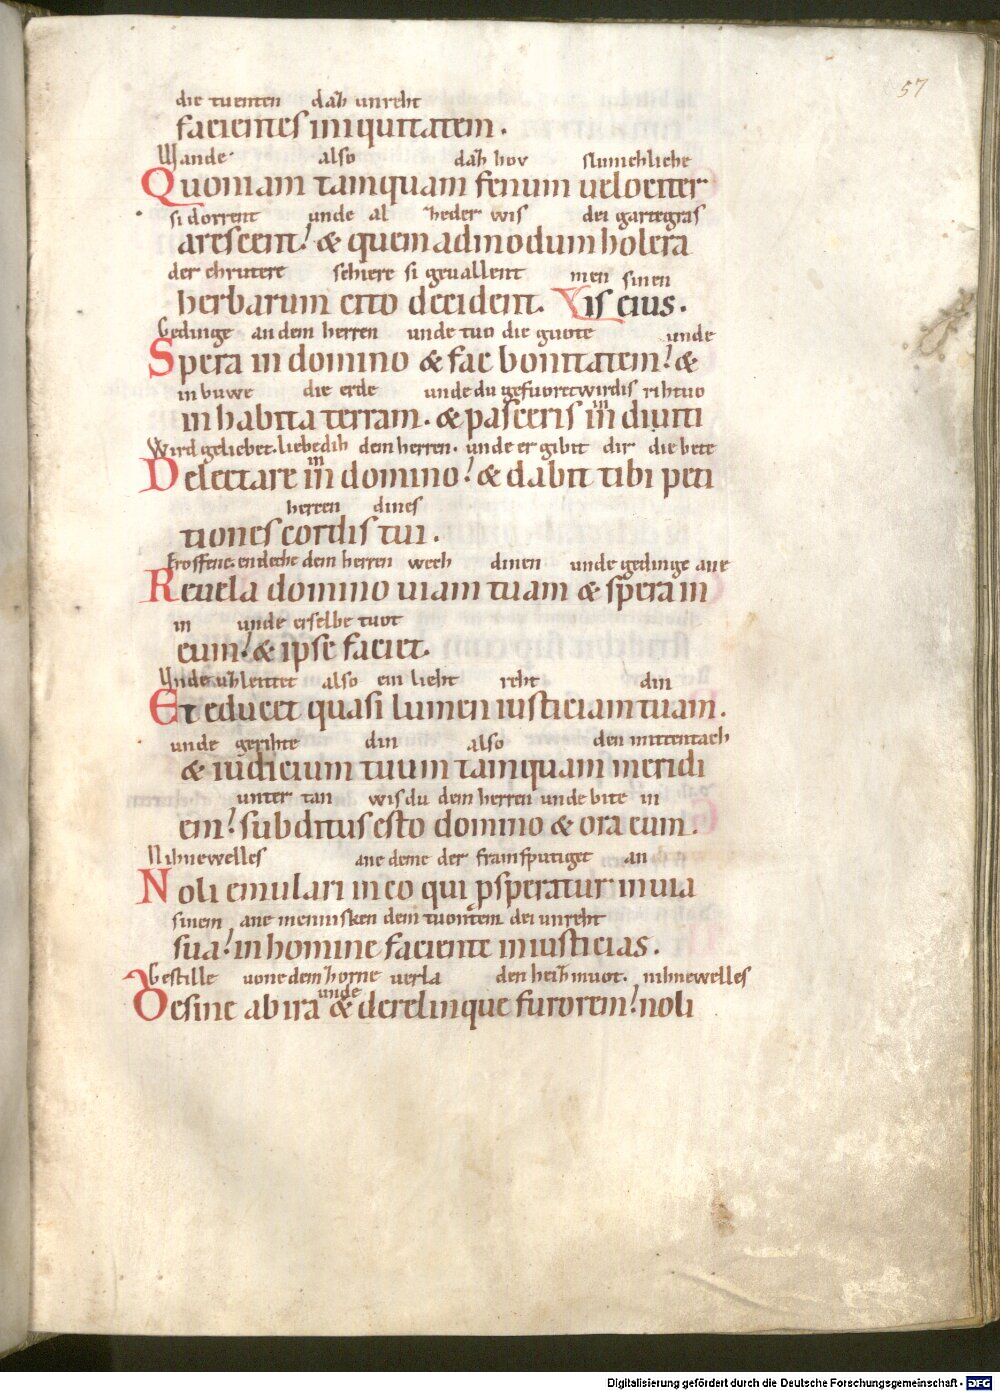 57
die tuenten daħ unreht
facientes iniquitatem.
Wande also daħ hov sliumehliche
Quoniam tamquam fenum velociter
si dorrent unde al heder wis dei gartegras
arescent! & quemadmodum holera
der chrutere schiere si gevallent men sinen
herbarum cito decident. Vis eius.
Gedinge an dem herren unde tuo die guote unde
Spera in domino & fac bonitatem! &
in buwe die erde unde du gefuoret wirdis rihtuo
inhabita terram. & pasceris in diviti
Wird geliebet. liebe dih dem herren. unde er gibit dir die bete
Delectare in domino! & dabit tibi peti
herren dines
tiones cordis tui.
endeche dem herren wech dinen unde gedinge ane
Revela domino viam tuam & spera in
in unde er selbe tuot
eum! & ipse faciet.
Unde leittet also ein lieht reht din
Et educet quasi lumen iusticiam tuam.
unde gerihte din also den mittentach
& iudicium tuum tamquam meridi
unter tan wis du dem herren unde bite in
em! subditus esto domino & ora eum.
Nihnewelles ane deme der framsputiget an
Noli emulari in eo qui psperatur in via
sinem ane mennisken dem tuontem dei unreht
sua! in homine faciente iniusticias.
Gestille vone dem horne verla den heiħmuot. nihnewelles
unde
Desine ab ira & derelinque furorem! noli
Digitalisierung gefördert durch die Deutsche Forschungsgemeinschaft - DFG